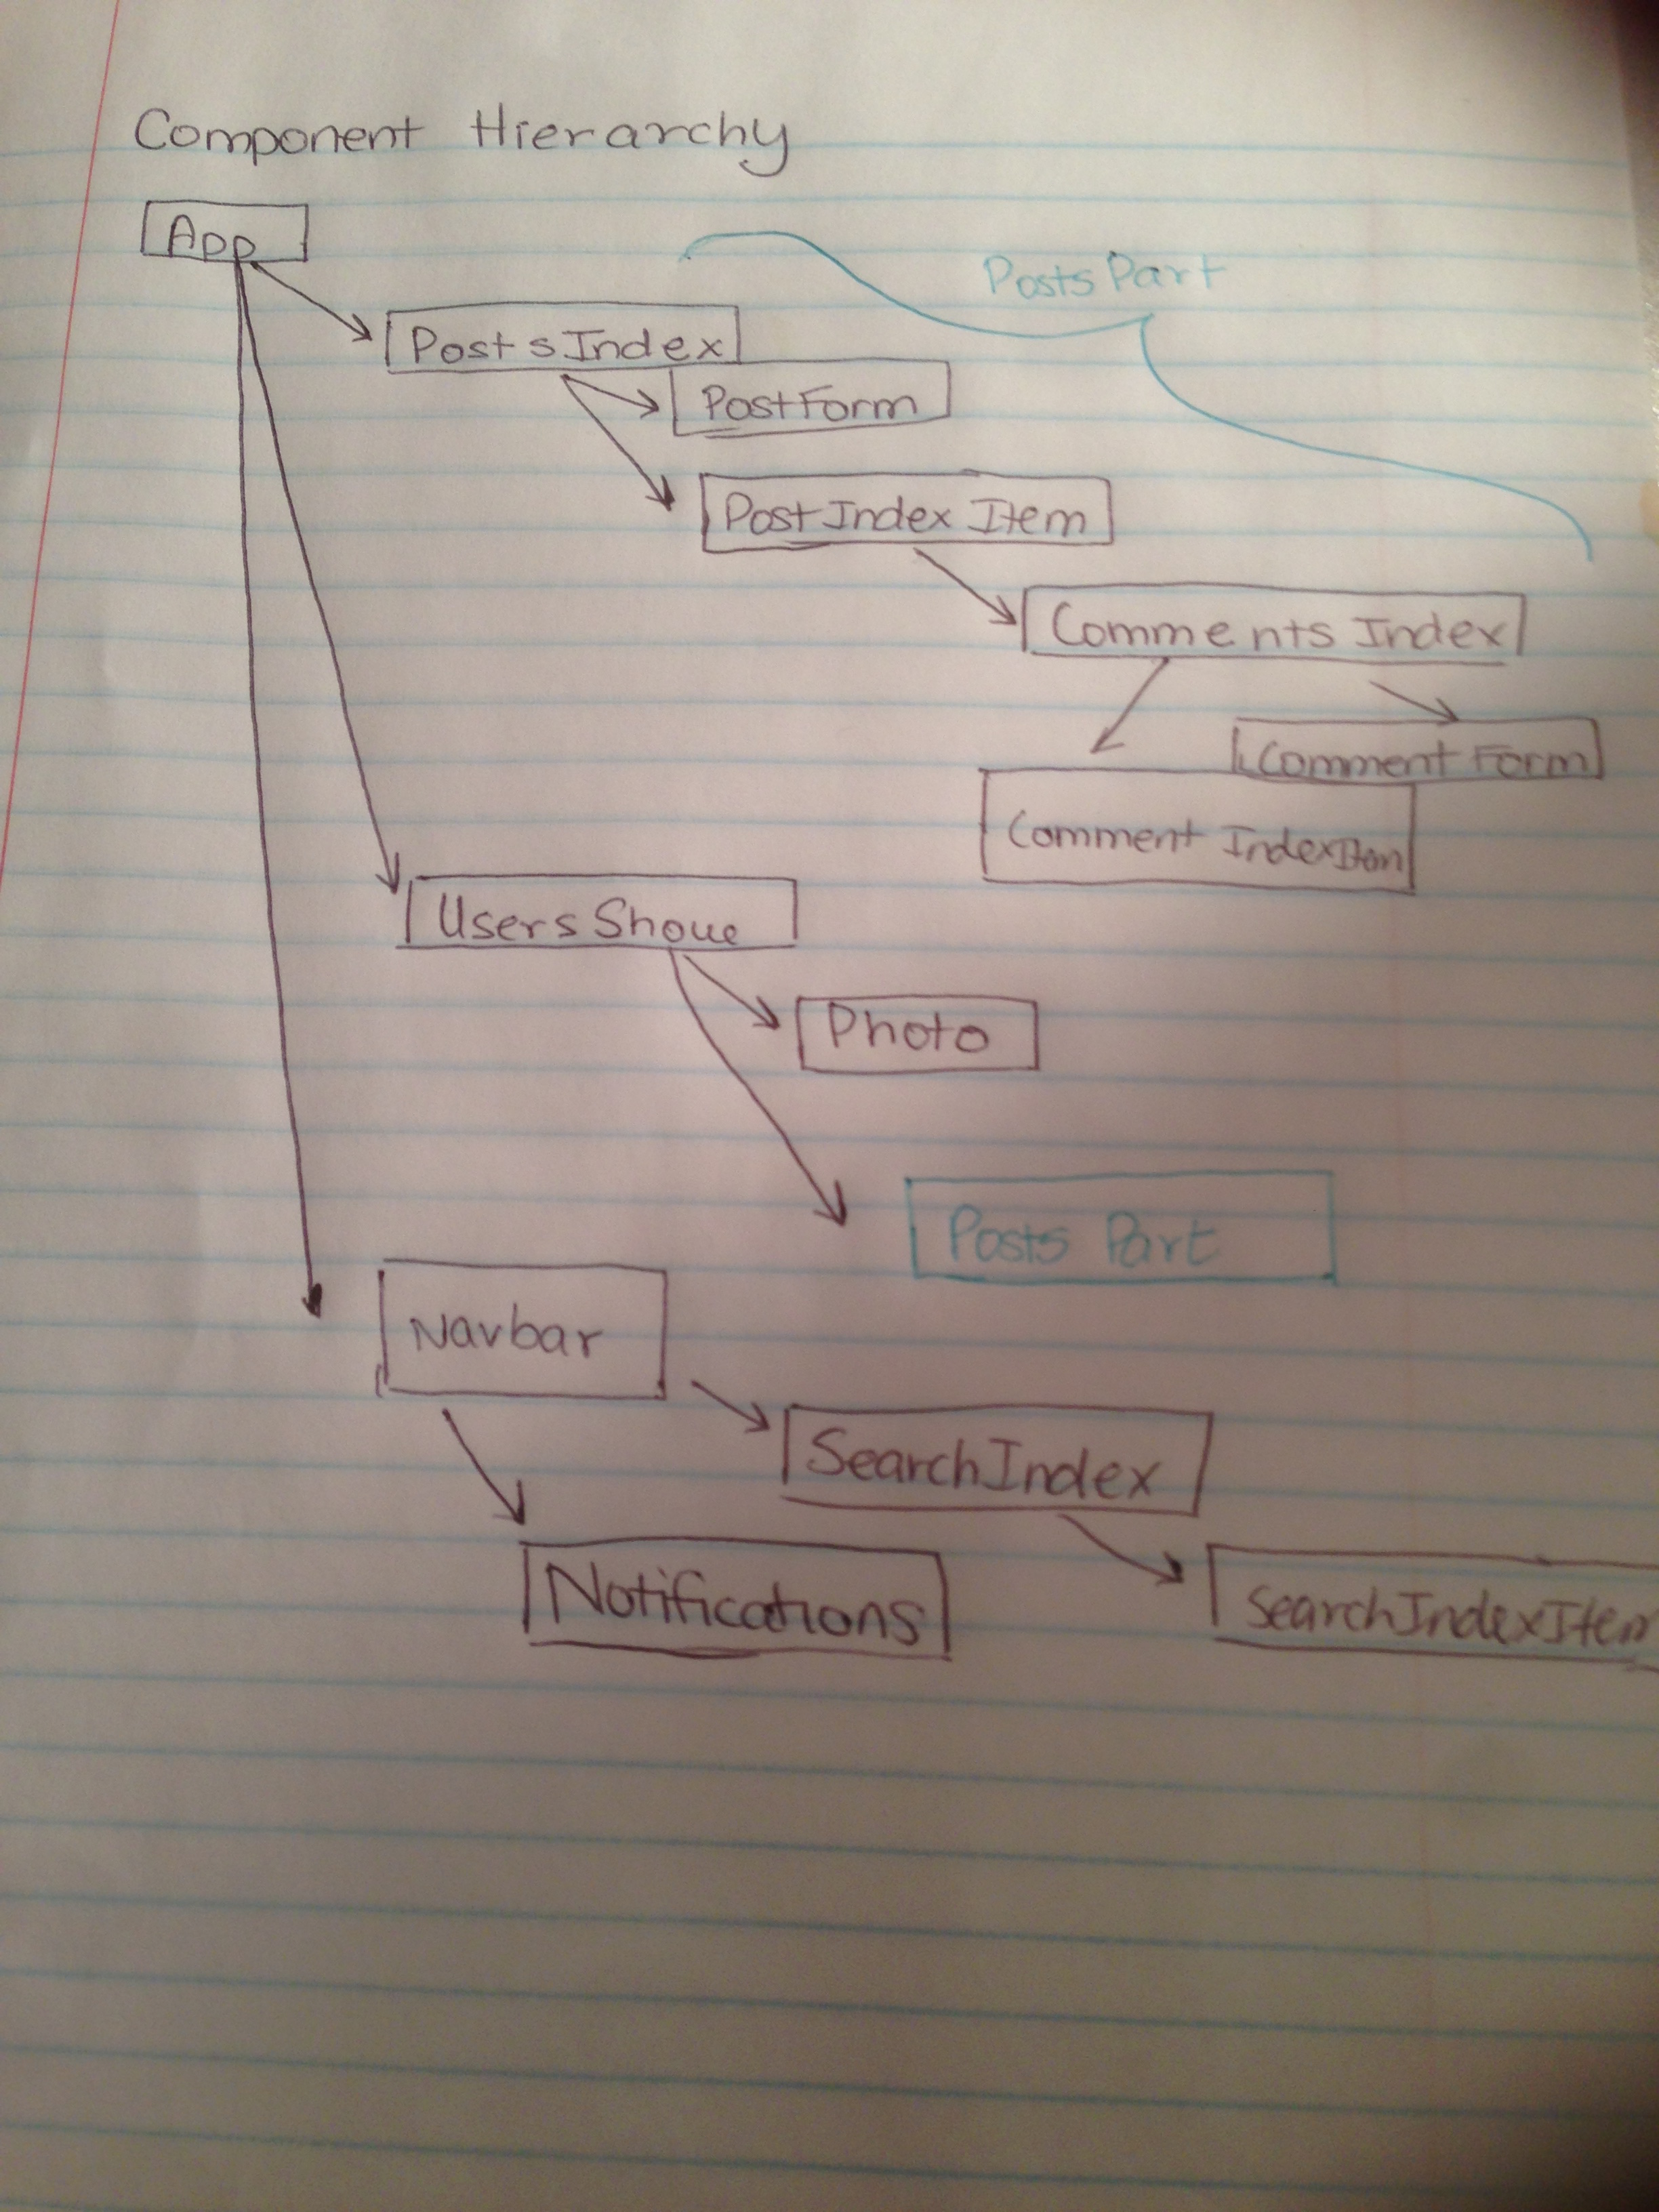 Component Hierarchy
App
Posts Part
PostsIndex
PostForm
PostIndex Item
Comments Index
Comment Form
Comment IndexItem
UsersShow
Photo
Posts Part
Navbar
SearchIndex
Notifications
SearchIndexItem